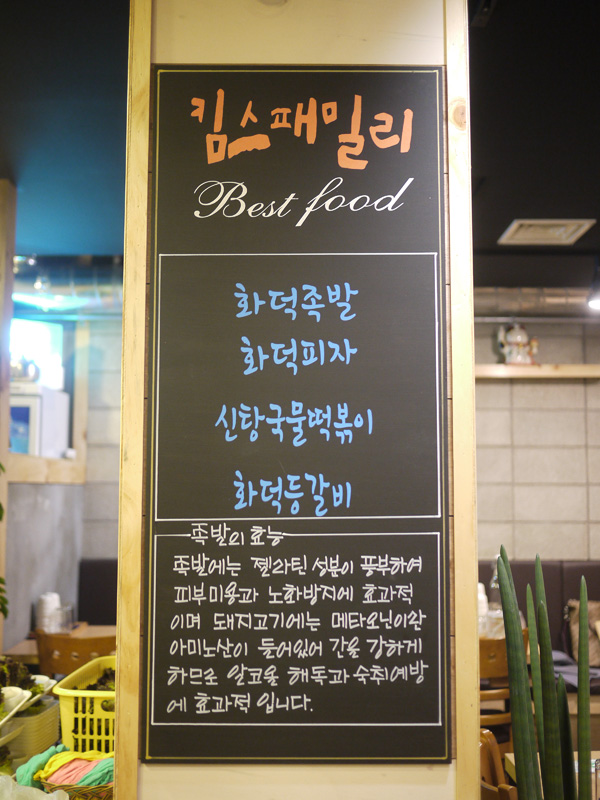 킴스패밀리
Best food
화덕족발
화덕피자
신탕국물떡볶이
화덕등갈비
족발의 효능
족발에는 젤라틴 성분이 풍부하여
피부미용과 노화방지에 효과적
이며 돼지고기에는 메타오닌이왁
아미노산이 들어있어 간을 강하게
하므로 알코올 해독과 숙취예방
에 효과적 입니다.